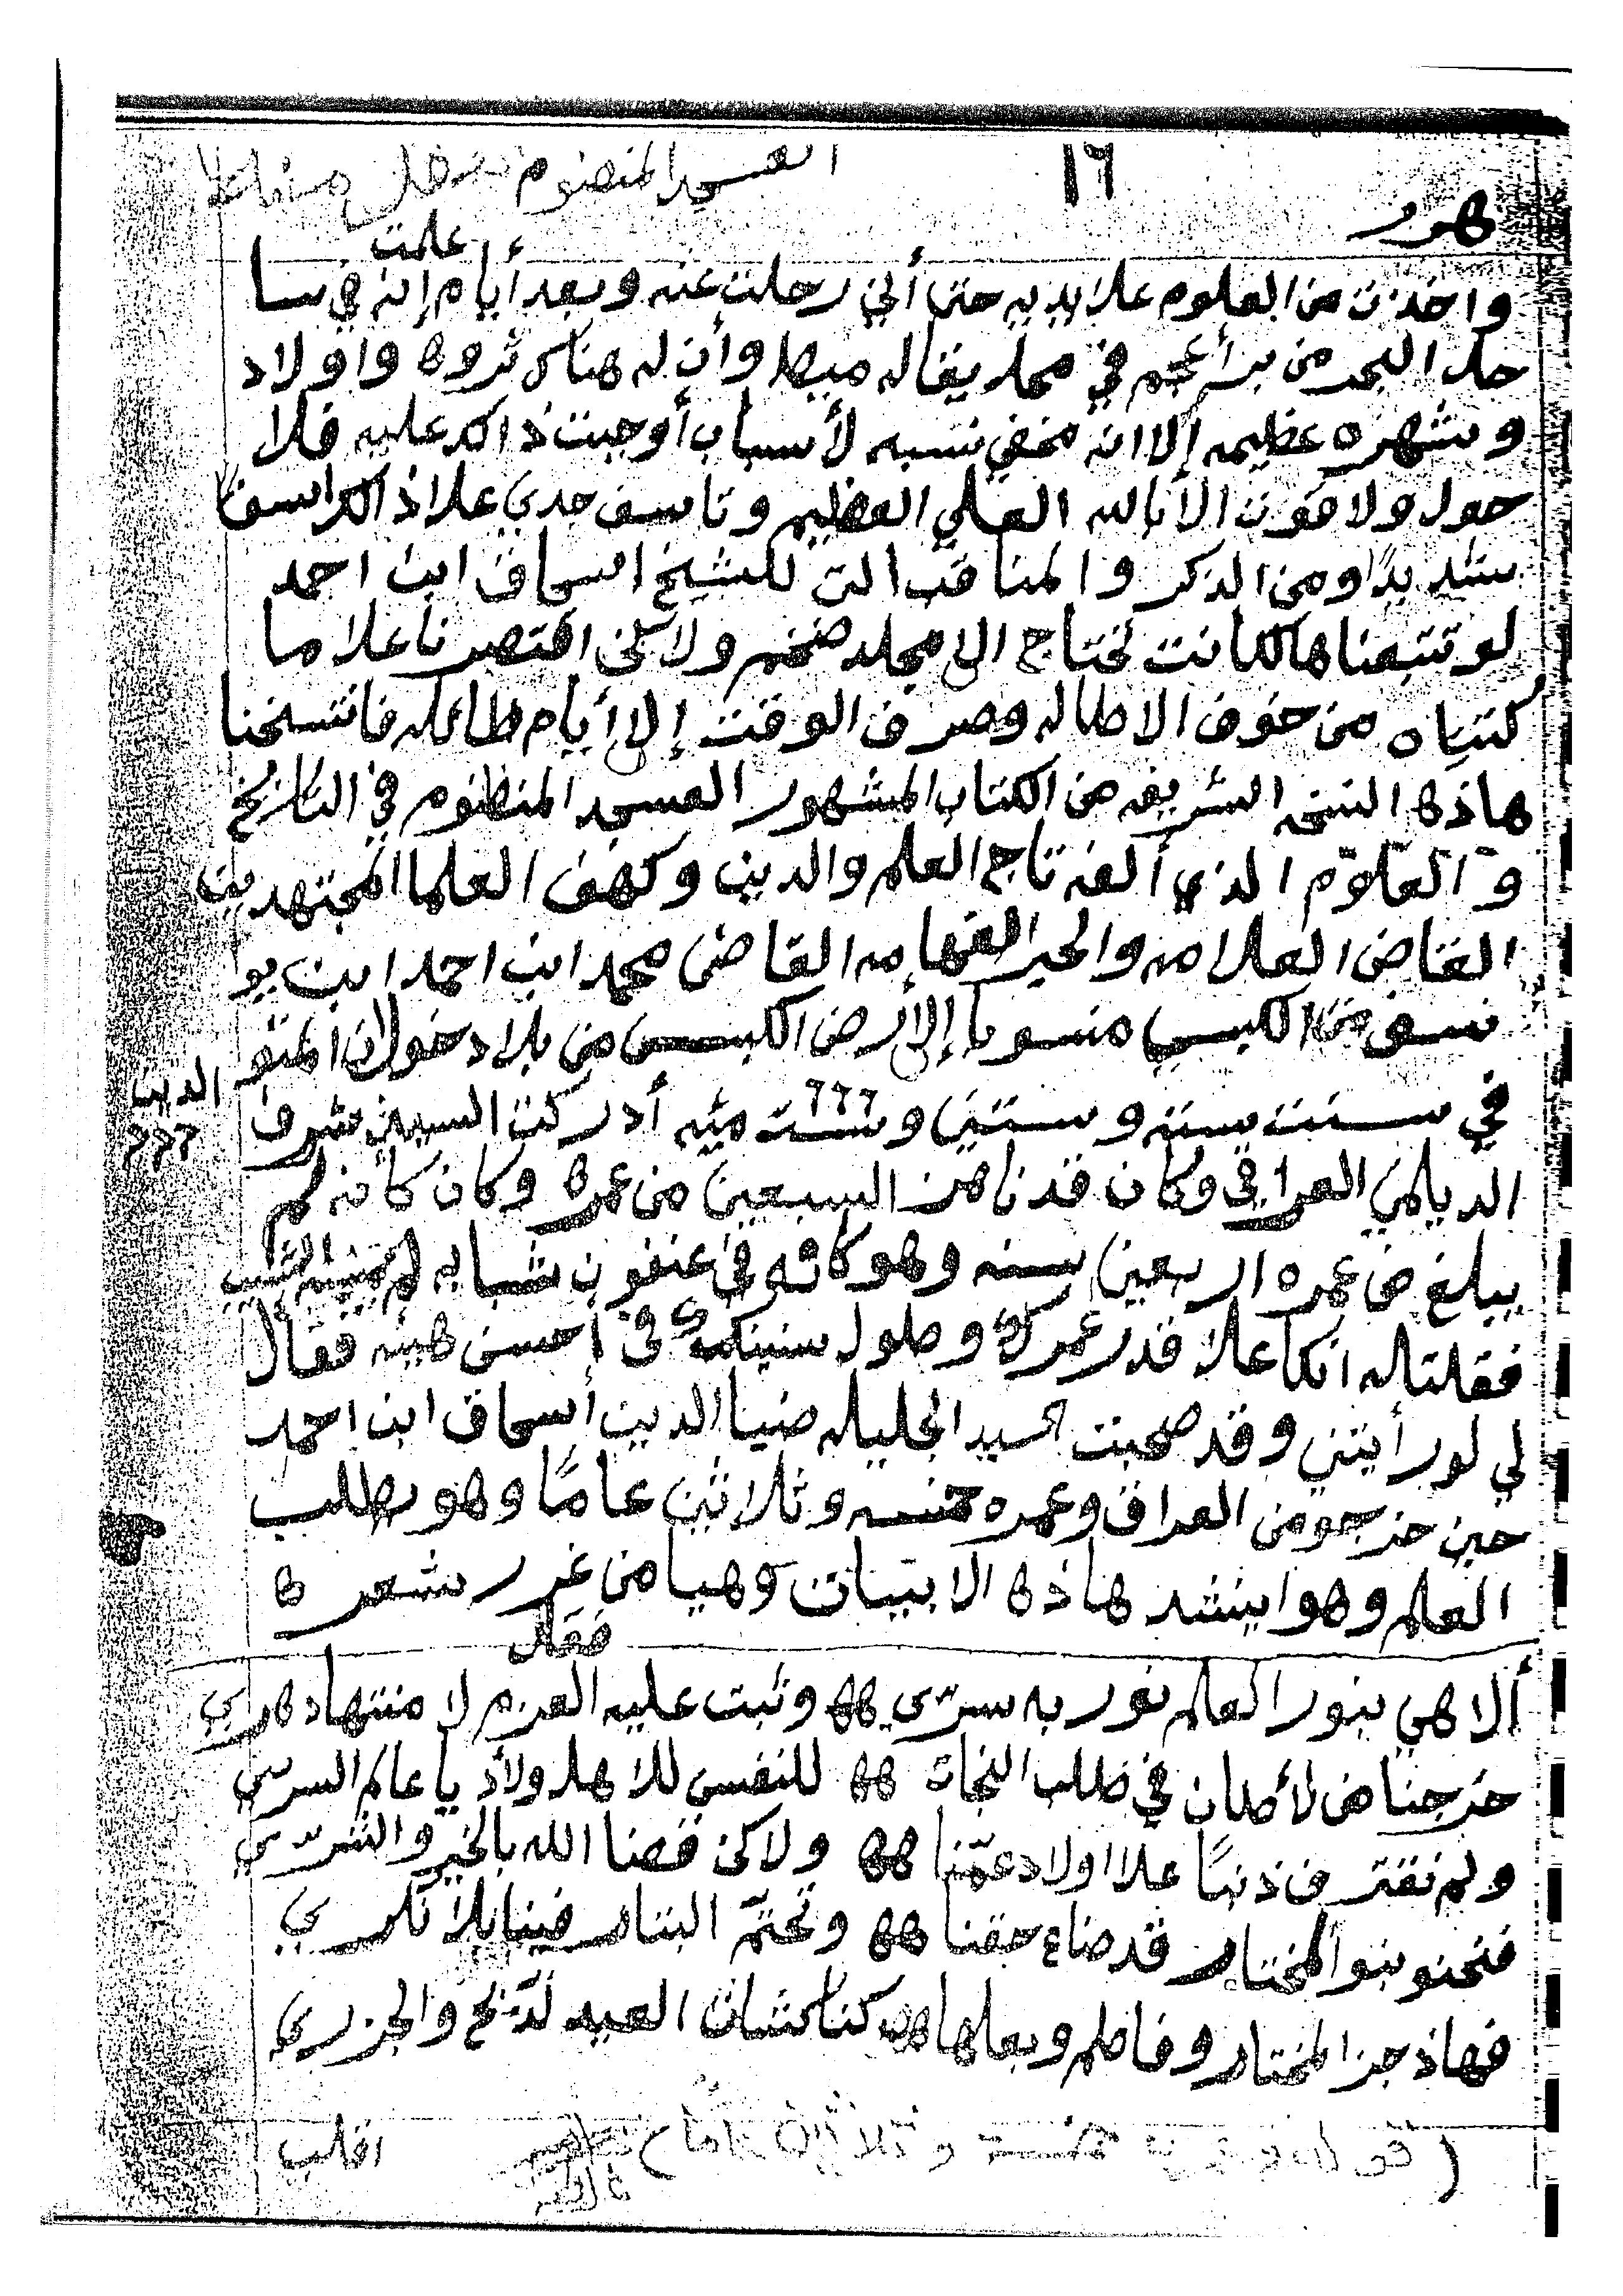 ١٦
العسجد المنضوم
علمت
واخذت من العلوم علا يديه حتى أني رحلت عنه وبعد أيام إنه في سا
حل البحر من بر أعجم في محل يقاله ميط وأن له هناك ثروه واولاد
وشهره عظيمه إلا انه مخفي نسبه لأسباب أوجبت ذالك عليه فلا
حول ولا قوت الا بالله العلي العظيم وتاسف جدي علا ذالك اسفاً
شديداً ومن الذكر والمناقب التي للشيخ اسحاق ابن احمد
لو تتبعناها لكانت تحتاج الى مجلد ضخم ولاكن اقتصرنا علا ما
كتبناه من خوف الاطاله وصرف الوقت إلى أيام طائله فانتسخنا
هاذه النسخه الشريفه من الكتاب المشهور العسجد المنظوم في التاريخ
والعلوم الذي ألفه تاج العلم والدين وكهف العلما المجتهدين
القاضي العلامه والحبر الفهامه القاضي محمد ابن احمد ابن يو
سف من الكبسي منسوبا إلى أرض الكبس من بلاد خولان المتو
في سنت سته وستين وست ميه أدركت السيد شرف
٦٦٦
الدين
٦٦٦
الديلمي العراقي وكان قد ناهز السبعين من عمره وكان كأنه لم
يبلغ من عمره اربعين سنه وهو كأنه في عنفون شبابه لم الشيب
فقلتاله انكا علا قدر عمرك وطول سنينك في أحسن هيئه فقال
لي لو رأيتني وقد صحبت السيد الجليله ضيا الدين أسحاق ابن احمد
حين خرجو من العراق وعمره خمسه وثلاثين عامًا وهو يطلب
العلم وهوا ينشد هاذه الابيات وهيا من غرر شعره
فقال
ألاهي بنور العلم نور به سرّي هه وثبت عليه العزم لا منتها دهري
خرجنا من لأطان في طلب النجات هه للنفس للاهل ولأد يا عالم السري
ولم نقترف ذنبًا علا اولاد عمّنا هه ولاكن قضا الله بالخير والشرّي
فنحنو بنو المختار قد ضاع حقنا هه وتحتمّ البتار فينا بلا نكري
فهاذ جزا المختار وفاطم وبعلها هه كنا كشات العيد لذبح والجزري
وثلاثين عاماً
اقلب